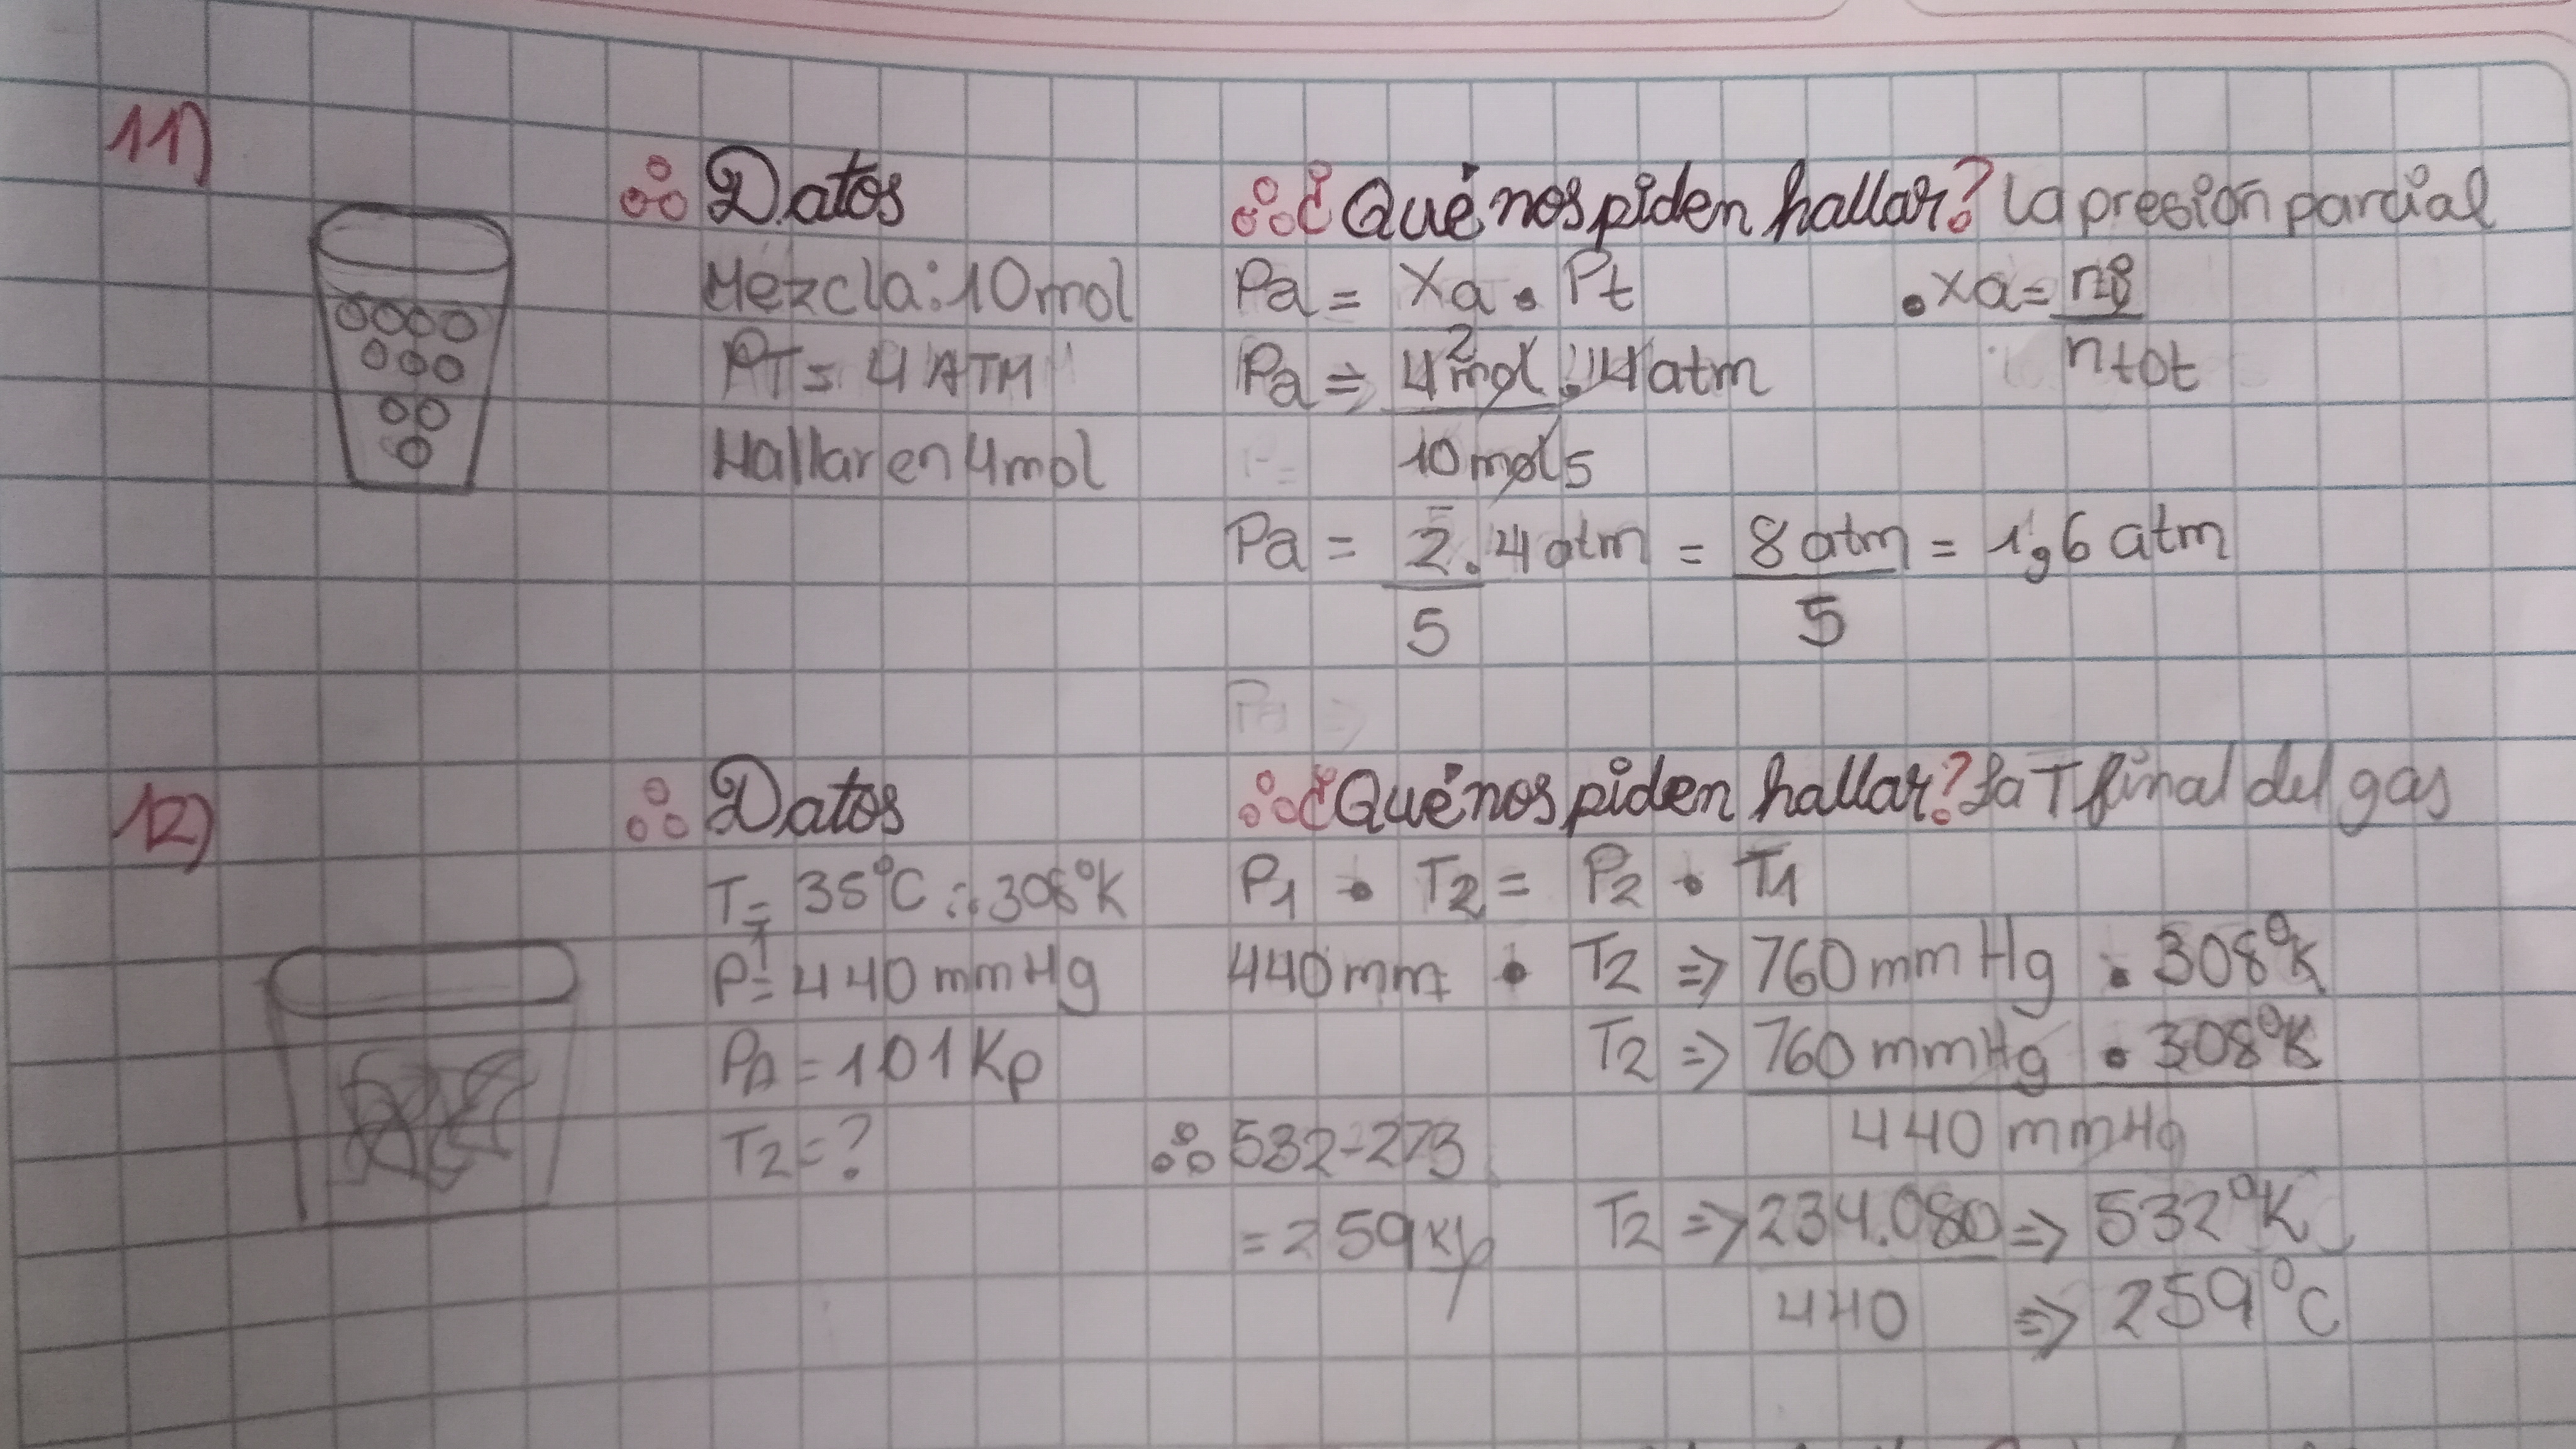 11)
Datos
Mezcla: 10 mol
PT = 4 ATM
Hallar en 4 mol
¿Qué nos piden hallar? La presión parcial
Pa = Xa . Pt
. Xa = ng / ntot
Pa => 4 mol 2 . 4 atm / 10 mol 5
Pa = 2 . 4 atm / 5 = 8 atm / 5 = 1,6 atm
12)
Datos
T1 = 35°C ∴ 308°K
P1 = 440 mm Hg
PA = 101 Kp
T2 = ?
¿Qué nos piden hallar? La T final del gas
P1 . T2 = P2 . T1
440 mm . T2 => 760 mm Hg . 308°K
T2 => 760 mm Hg . 308°K / 440 mm Hg
T2 => 234.080 / 440 => 532°K
=> 259°C
532 - 273
= 259